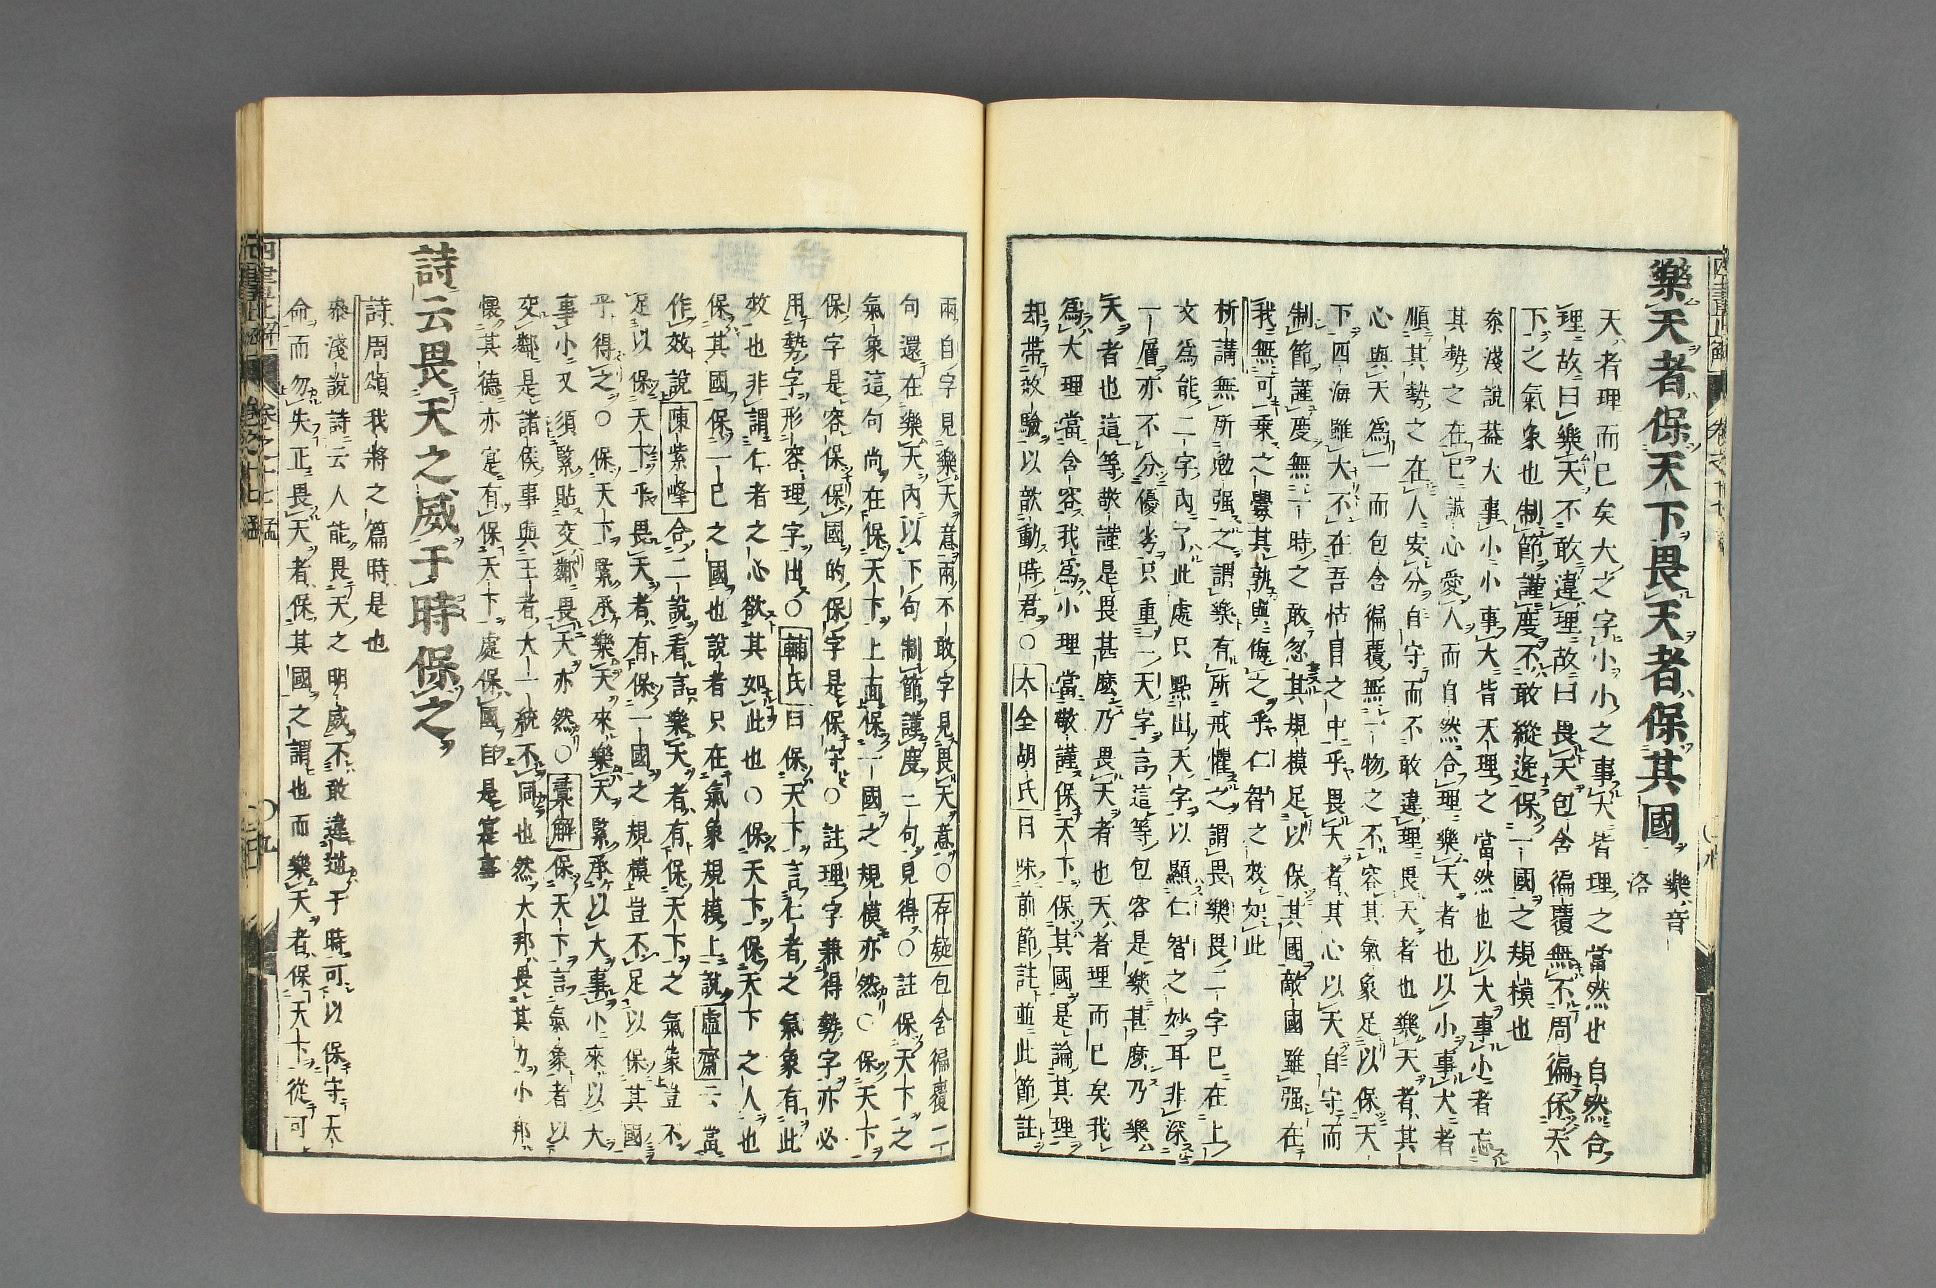 樂天者保天下畏天者保其國
樂音洛
天者理而已矣大之字小小之事大皆理之當然也自然合
理故曰樂天不敢違理故曰畏天包含徧覆無不周徧保天
下之氣象也制節謹度不敢縱逸保一國之規模也
叅淺說葢大事小小事大皆天理之當然也以大事小者忘
其勢之在已誠心愛人而自然合理樂天者也以小事大者
順其勢之在人安分自守而不敢違理畏天者也樂天者其
心與天爲一而包含徧覆無一物之不容其氣象足以保天
下四海雖大不在吾怙冒之中乎畏天者其心以天自守而
制節謹度無一時之敢忽其規模足以保其國敵國雖强在
我無可乗之釁其孰與侮之乎仁智之效如此
析講無所勉强之謂樂有所戒懼之謂畏樂畏二字已在上
文爲能二字內了此處只㸃出天字以顯仁智之妙耳非深
一層亦不分優劣只重一天字言這等包容是樂甚麼乃樂
天者也這等敬謹是畏甚麼乃畏天者也天者理而已矣我
爲大理當含容我爲小理當敬謹保天下保其國是論其理
却帶效驗以歆動時君○大全胡氏曰味前節註並此節註
兩自字見樂天意兩不敢字見畏天意○存疑包含徧覆二
句還在樂天內以下句制節謹度二句見得○註保天下之
氣象這句尚在保天下上面保一國之規模亦然○保天下
保字是容保保國的保字是保守○註理字兼得勢字亦必
用勢字形容理字出○輔氏曰保天下言仁者之氣象有此
效也非謂仁者之心欲其如此也○保天下保天下之人也
保其國保一已之國也說者只在氣象規模上說盧齋云當
作效說陳紫峰合二說看言樂天者有保天下之氣象豈不
足以保天下乎畏天者有保一國之規模豈不足以保其國
乎得之○保天下緊承樂天來樂天緊承以大事小來以大
事小又須緊貼交鄰畏天亦然○蒙解保天下言氣象者以
交鄰是諸侯事與王者大一統不同也然大邦畏其力小邦
懷其德亦寔有保天下處保國自是寔事
詩云畏天之威于時保之
詩周頌我將之篇時是也
叅淺說詩云人能畏天之明威不敢違逆于時可以保守天
命而勿失正畏天者保其國之謂也而樂天者保天下從可